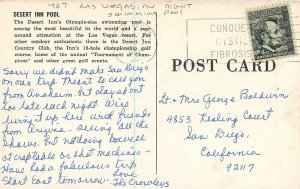 1967 LAS VEGAS, NV NIGHT
SWIMMING POOL
DESERT INN POOL
The Desert Inn's Olympic-size swimming pool is
among the most beautiful in the world and a year
around attraction at the Las Vegas resort. Among
other outdoor enthusiasts there is the Desert Inn
Country Club, the Inn's 18-hole championship golf
course, home of the annual "Tournament of Cham-
pions" and other great golf events.
CONQUER
CYSTIC
FIBROSIS
POST CARD
Sorry we didn't make San Diego
on our trip. Meant to call you
from Anaheim but played out
too late each night. Were
living it up here with friends
from - seeing all the
shows, but not doing so well
at craptables or slot machines.
Have had a fabulous trip
Start East tomorrow. Love
The Crowleys
Dr & Mrs George Baldwin
4853 Kesling Court
San Diego,
California
92117